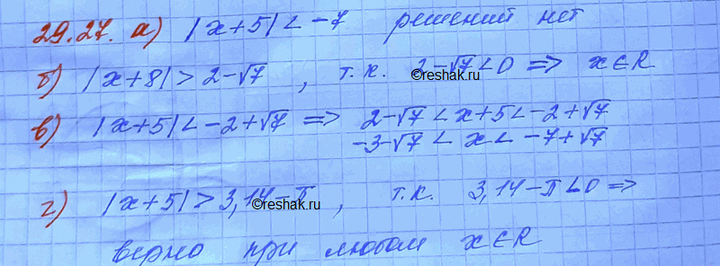 29.27. а) |x+5| < -7 решений нет
б) |x+8| > 2-√7, т.к. 2-√7 < 0 => x∈R
©reshak.ru
в) |x+5| < -2+√7 => 2-√7 < x+5 < -2+√7
-3-√7 < x < -7+√7
г) |x+5| > 3,14-π, т.к. 3,14-π < 0 =>
©reshak.ru
верно при любом x∈R